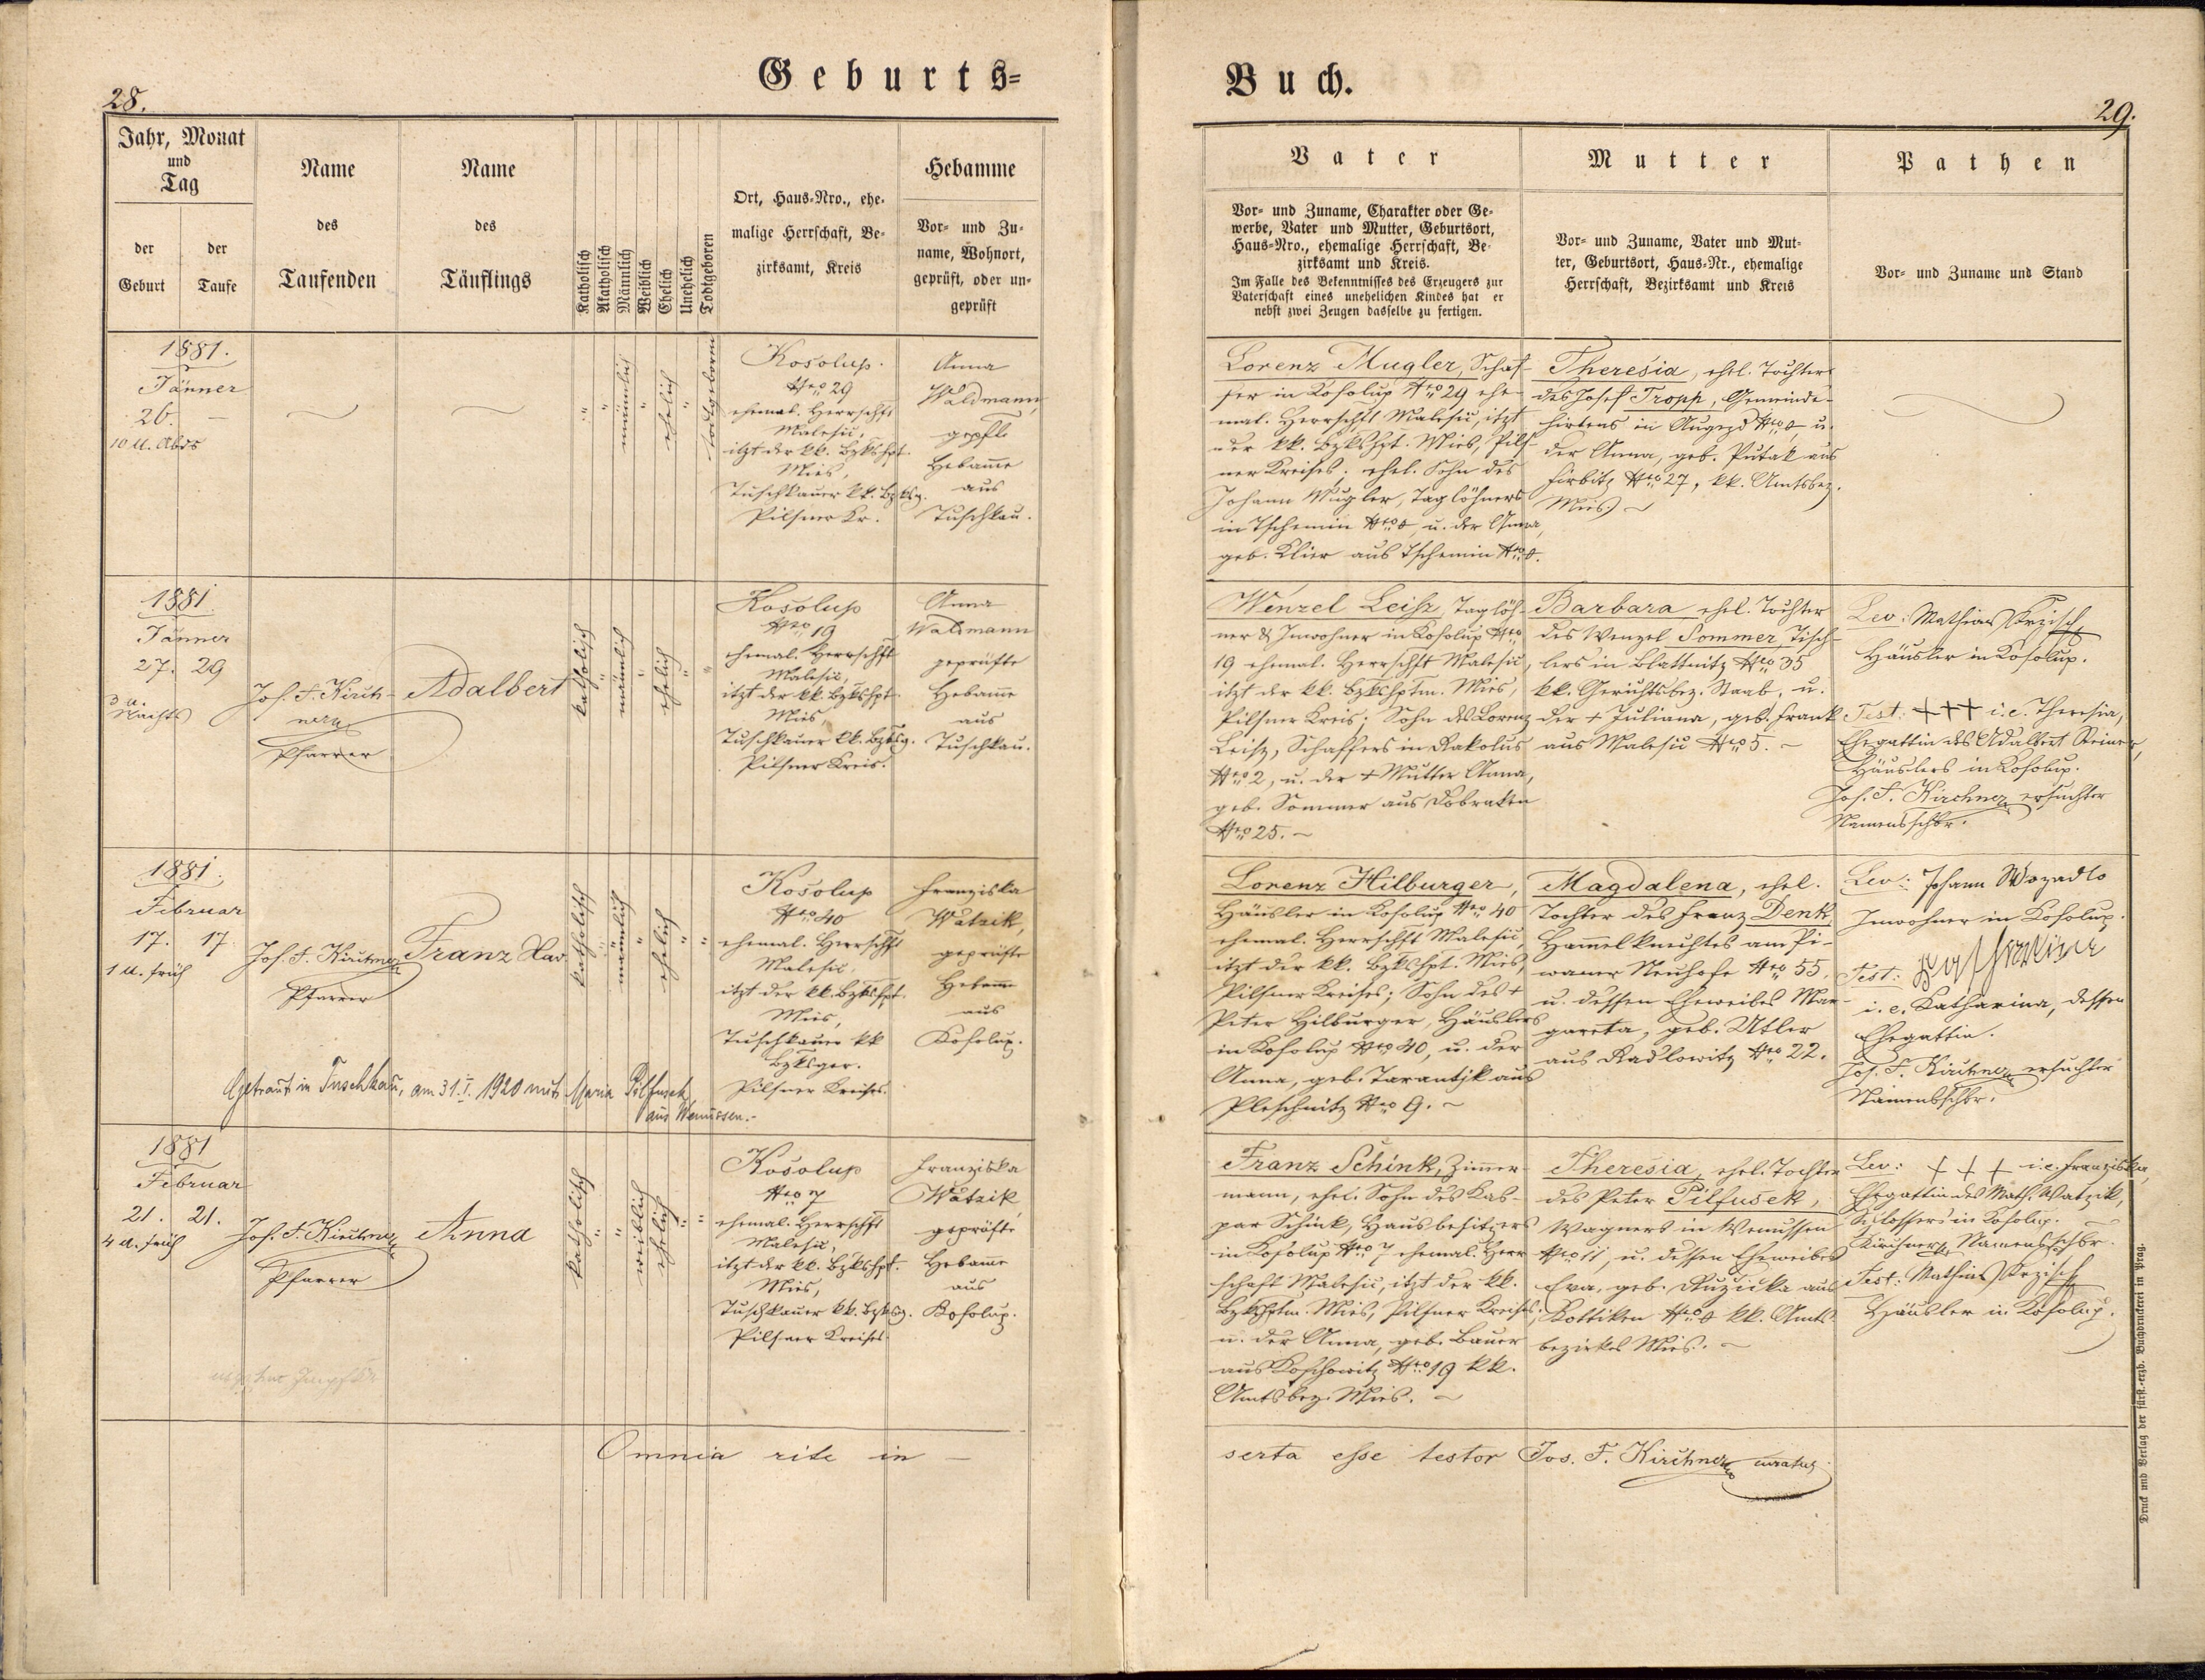 Geburts=
Buch.
28.
29.
Jahr, Monat
und
Tag
der
Geburt
der
Taufe
Name
des
Taufenden
Name
des
Täuflings
Katholisch
Akatholisch
Männlich
Weiblich
Ehelich
Unehelich
Todtgeboren
Ort, Haus-Nro., ehe-
malige Herrschaft, Be-
zirksamt, Kreis
Hebamme
Vor- und Zu-
name, Wohnort,
geprüft, oder un-
geprüft
Vater
Vor- und Zuname, Charakter oder Ge-
werbe, Vater und Mutter, Geburtsort,
Haus-Nro., ehemalige Herrschaft, Be-
zirksamt und Kreis.
Im Falle des Bekenntnisses des Erzeugers zur
Vaterschaft eines unehelichen Kindes hat er
nebst zwei Zeugen dasselbe zu fertigen.
Mutter
Vor- und Zuname, Vater und Mut-
ter, Geburtsort, Haus-Nr., ehemalige
Herrschaft, Bezirksamt und Kreis
Pathen
Vor- und Zuname und Stand
1881.
Jänner
26. –
10 U. Abds
männlich
ehelich
todtgeboren
Kosolup.
Nro 29
ehemal. Herrschft
Malesic,
itzt der kk. Bzkshpt.
Mies,
Tuschkauer kk. Bzksg.
Pilsner Kr.
Anna
Waldmann,
gepfte
Hebame
aus
Tuschkau.
Lorenz Mugler, Schaf-
fer in Kosolup Nro 29 ehe-
mal. Herrschft Malesic, itzt
der kk. Bzkshpt. Mies, Pils-
ner Kreises. ehel. Sohn des
Johann Mugler, Taglöhners
in Tschemin Nro 0, u. der Anna,
geb. Klier aus Tschemin Nro 0.
Theresia, ehel. Tochter
des Josef Tropp, Gemeinde-
hirtens in Augezd Nro 0, u.
der Anna, geb. Putak aus
Nro 27, kk. Amtsbez.
Mies. ~
1881.
Jänner
27. 29
3 U.
Nachts
Jos. F. Kirch-
ner
Pfarrer
Adalbert
katholisch
männlich
ehelich
Kosolup
Nro 19
ehemal. Herrschft
Malesic,
itzt der kk. Bzkshpt.
Mies,
Tuschkauer kk. Bzksg.
Pilsner Kreis.
Anna
Waldmann
geprüfte
Hebame
aus
Tuschkau.
Wenzel Leisz, Taglöh-
ner & Inwohner in Kosolup Nro
19 ehemal. Herrschft Malesic,
itzt der kk. Bzkshptm. Mies,
Pilsner Kreis; Sohn des Lorenz
Leisz, Schaffers in Rakolus
Nro 2, u. der + Mutter Anna,
geb. Sommer aus Dobraken
Nro 25. ~
Barbara ehel. Tochter
des Wenzel Sommer, Tisch-
lers in Blattnitz Nro 35
kk. Gerichtsbez. Staab, u.
der + Juliana, geb. Frank
aus Malesic Nro 5. ~
Lev: Mathias Krzisch
Häusler in Kosolup.
Test: +++ i.e. Theresia,
Ehegattin des Adalbert Steiner,
Häuslers in Kosolup.
Jos. F. Kirchner ersuchter
Namensschbr.
1881.
Februar
17. 17.
1 U. früh
Jos. F. Kirchner
Pfarrer
Franz Xav.
katholisch
männlich
ehelich
Kosolup
Nro 40
ehemal. Herrschft
Malesic.
itzt der kk. Bzkshpt.
Mies,
Tuschkauer kk
Bzksger.
Pilsner Kreises.
Franziska
Watzik,
geprüfte
Hebame
aus
Kosolup.
Getraut in Tuschkau, am 31.I. 1920 mit Maria Pilfusek
aus Wenussen.-
Lorenz Hilburger,
Häusler in Kosolup Nro 40
ehemal. Herrschft Malesic,
itzt der kk. Bzkshpt. Mies,
Pilsner Kreises; Sohn des +
Peter Hilburger, Häuslers
in Kosolup Nro 40, u. der
Anna, geb. Tarantjk aus
Pleschnitz Nro 9. ~
Magdalena, ehel.
Tochter des Franz Denk
Hammelknechtes am Pi-
waner Neuhofe Nro 55.
u. dessen Eheweibes Mar-
gareta, geb. Utler
aus Radlowitz Nro 22.
Lev: Johann Wozadlo
Inwohner in Kosolup.
Test: Katharina
i.e. Katharina, dessen
Ehegattin.
Jos. F. Kirchner ersuchter
Namensschbr.
1881
Februar
21. 21.
4 U. früh
Jos. F. Kirchner
Pfarrer
Anna
katholisch
weiblich
ehelich
Kosolup
Nro 7
ehemal. Herrschft
Malesic,
itzt der kk. Bzkshpt.
Mies,
Tuschkauer kk. Bzksg.
Pilsner Kreises.
Franziska
Watzik
geprüfte
Hebame
aus
Kosolup.
Franz Schink, Zimer-
mann, ehel. Sohn des Kas-
par Schink, Hausbesitzers
in Kosolup Nro 7 ehemal. Herr-
schaft Malesic, itzt der kk.
Bzkshptm. Mies, Pilsner Kreises,
u. der Anna, geb. Bauer
aus Koschowitz Nro 19 kk.
Amtsbez. Mies. ~
Theresia, ehel. Tochter
des Peter Pilfusek,
Wagners in Wenussen
Nro 11, u. dessen Eheweibes
Eva, geb. Ruzicka aus
Kottiken Nro 0 kk. Amts-
bezirkes Mies. ~
Lev: + + + i.e. Franziska,
Ehegattin des Math. Watzik,
Schlossers in Kosolup.
Kirchner Namensschbr.
Test: Mathias Krzisch
Häusler in Kosolup.
Omnia rite in –
serta esse testor Jos. F. Kirchner curatus
Druck und Verlag der fürst.-erzb. Buchdruckerei in Prag.